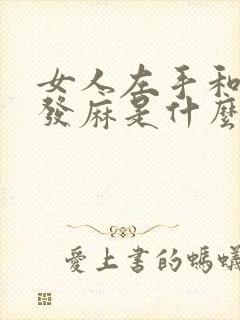 女人左手和
發麻是什麼
愛上書的螞蟻